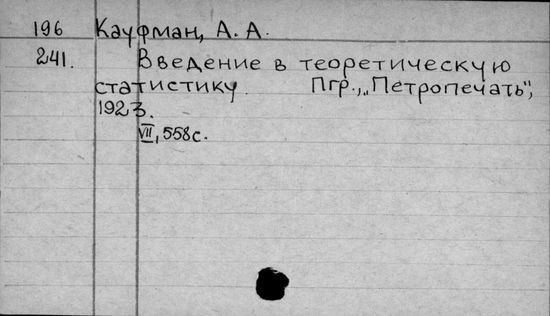 196 Кауфман, А. А.
241. Введение в теоретическую
статистику. Пгр., „Петропечать",
1923.
VII, 558 с.